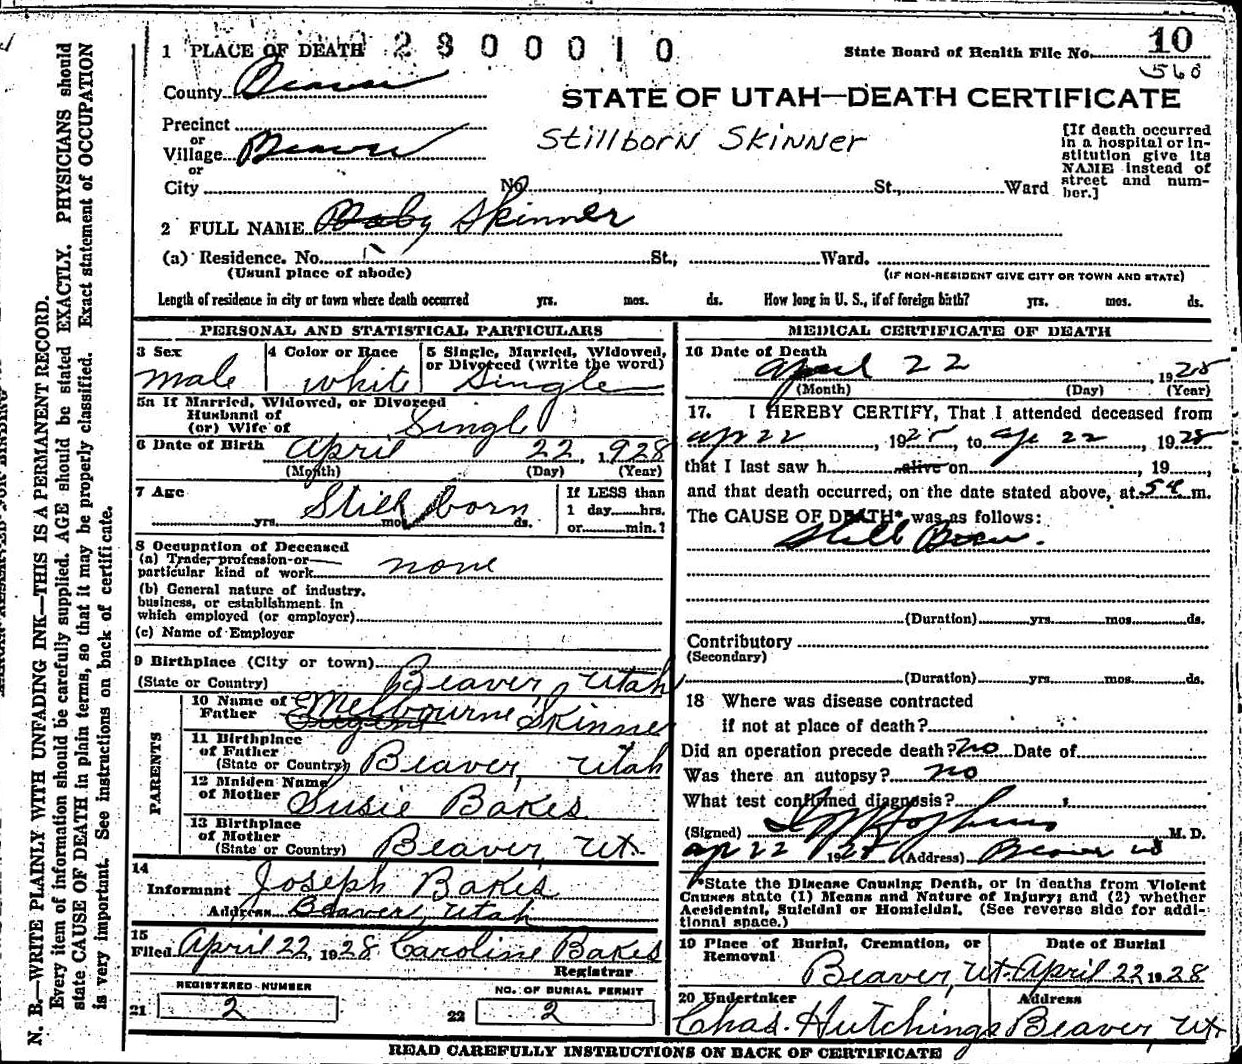 1 PLACE OF DEATH 2800010 State Board of Health File No. 10
560
County Beaver
STATE OF UTAH—DEATH CERTIFICATE
Precinct
or
Village Beaver
or
Stillborn Skinner
[If death occurred in a hospital or institution give its NAME instead of street and number.]
City No. St., Ward
2 FULL NAME Baby Skinner
(a) Residence. No. St., Ward.
(Usual place of abode) (IF NON-RESIDENT GIVE CITY OR TOWN AND STATE)
Length of residence in city or town where death occurred yrs. mos. ds. How long in U. S., if of foreign birth? yrs. mos. ds.
PERSONAL AND STATISTICAL PARTICULARS
3 Sex 4 Color or Race 5 Single, Married, Widowed, or Divorced (write the word)
male white Single
5a If Married, Widowed, or Divorced
Husband of
(or) Wife of Single
6 Date of Birth April 22, 1928
(Month) (Day) (Year)
7 Age Still born
yrs. mos. ds.
If LESS than
1 day hrs.
or min.?
8 Occupation of Deceased
(a) Trade, profession or
particular kind of work none
(b) General nature of industry,
business, or establishment in
which employed (or employer)
(c) Name of Employer
9 Birthplace (City or town)
(State or Country) Beaver, Utah
PARENTS
10 Name of
Father Melbourne Skinner
11 Birthplace
of Father
(State or Country) Beaver, Utah
12 Maiden Name
of Mother Susie Bakes
13 Birthplace
of Mother
(State or Country) Beaver, Ut.
14
Informant Joseph Bakes
Address Beaver, Utah
15
Filed April 22, 1928 Caroline Bakes
Registrar
REGISTERED NUMBER NO. OF BURIAL PERMIT
21 2 22 2
MEDICAL CERTIFICATE OF DEATH
16 Date of Death
April 22 1928
(Month) (Day) (Year)
17. I HEREBY CERTIFY, That I attended deceased from
Apr 22, 1928, to Apr 22 1928
that I last saw h alive on, 19,
and that death occurred, on the date stated above, at 5 a m.
The CAUSE OF DEATH* was as follows:
Still Born.
(Duration) yrs. mos. ds.
Contributory
(Secondary)
(Duration) yrs. mos. ds.
18 Where was disease contracted
if not at place of death?
Did an operation precede death? no Date of
Was there an autopsy? no
What test confirmed diagnosis?
(Signed) M. D.
Apr 22 1928 (Address) Beaver Ut
*State the Disease Causing Death, or in deaths from Violent
Causes state (1) Means and Nature of Injury; and (2) whether
Accidental, Suicidal or Homicidal. (See reverse side for addi-
tional space.)
19 Place of Burial, Cremation, or Removal Date of Burial
Beaver, Ut. April 22 1928
20 Undertaker Address
Chas. Hutchings Beaver, Ut
READ CAREFULLY INSTRUCTIONS ON BACK OF CERTIFICATE
N. B.—WRITE PLAINLY WITH UNFADING INK—THIS IS A PERMANENT RECORD.
Every item of information should be carefully supplied. AGE should be stated EXACTLY. PHYSICIANS should
state CAUSE OF DEATH in plain terms, so that it may be properly classified. Exact statement of OCCUPATION
is very important. See instructions on back of certificate.